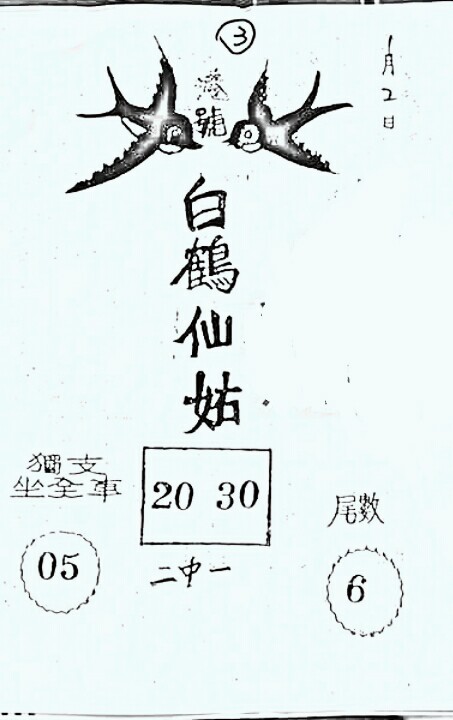 ③
港號
1月2日
白鶴仙姑
獨支
坐全車
05
20 30
二中一
尾數
6